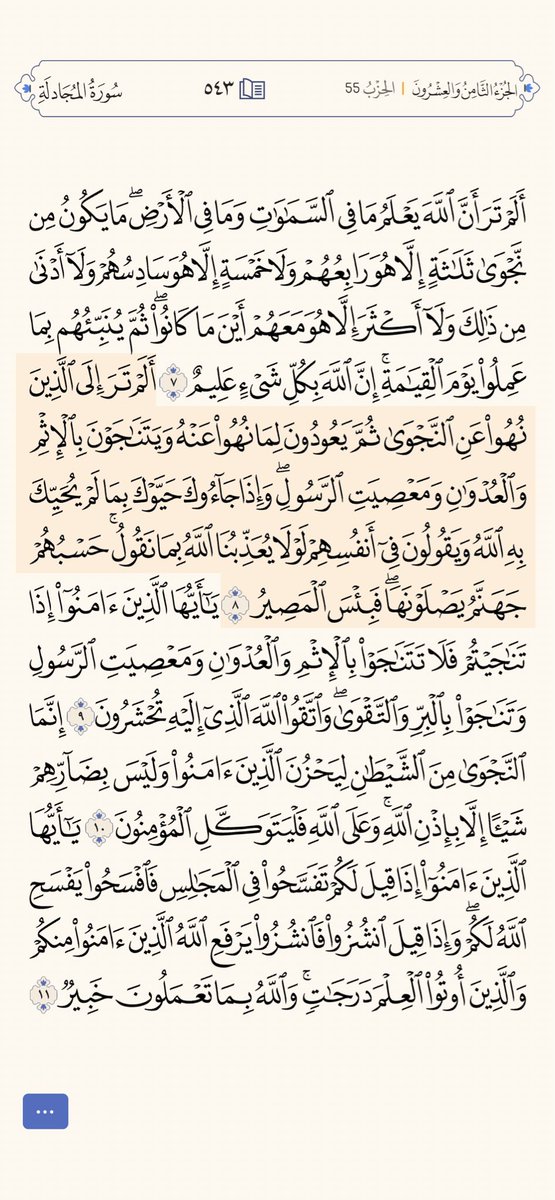 الجُزْءُ الثَّامِنُ وَالعِشْرُونَ | الحِزْبُ 55 ٥٤٣ سُورَةُ المُجَادلَةِ
أَلَمْ تَرَ أَنَّ ٱللَّهَ يَعْلَمُ مَا فِى ٱلسَّمَٰوَٰتِ وَمَا فِى ٱلْأَرْضِ ۖ مَا يَكُونُ مِن
نَّجْوَىٰ ثَلَٰثَةٍ إِلَّا هُوَ رَابِعُهُمْ وَلَا خَمْسَةٍ إِلَّا هُوَ سَادِسُهُمْ وَلَآ أَدْنَىٰ
مِن ذَٰلِكَ وَلَآ أَكْثَرَ إِلَّا هُوَ مَعَهُمْ أَيْنَ مَا كَانُوا۟ ۖ ثُمَّ يُنَبِّئُهُم بِمَا
عَمِلُوا۟ يَوْمَ ٱلْقِيَٰمَةِ ۚ إِنَّ ٱللَّهَ بِكُلِّ شَىْءٍ عَلِيمٌ ٧ أَلَمْ تَرَ إِلَى ٱلَّذِينَ
نُهُوا۟ عَنِ ٱلنَّجْوَىٰ ثُمَّ يَعُودُونَ لِمَا نُهُوا۟ عَنْهُ وَيَتَنَٰجَوْنَ بِٱلْإِثْمِ
وَٱلْعُدْوَٰنِ وَمَعْصِيَتِ ٱلرَّسُولِ ۖ وَإِذَا جَآءُوكَ حَيَّوْكَ بِمَا لَمْ يُحَيِّكَ
بِهِ ٱللَّهُ وَيَقُولُونَ فِىٓ أَنفُسِهِمْ لَوْلَا يُعَذِّبُنَا ٱللَّهُ بِمَا نَقُولُ ۚ حَسْبُهُمْ
جَهَنَّمُ يَصْلَوْنَهَا ۖ فَبِئْسَ ٱلْمَصِيرُ ٨ يَٰٓأَيُّهَا ٱلَّذِينَ ءَامَنُوٓا۟ إِذَا
تَنَٰجَيْتُمْ فَلَا تَتَنَٰجَوْا۟ بِٱلْإِثْمِ وَٱلْعُدْوَٰنِ وَمَعْصِيَتِ ٱلرَّسُولِ
وَتَنَٰجَوْا۟ بِٱلْبِرِّ وَٱلتَّقْوَىٰ ۖ وَٱتَّقُوا۟ ٱللَّهَ ٱلَّذِىٓ إِلَيْهِ تُحْشَرُونَ ٩ إِنَّمَا
ٱلنَّجْوَىٰ مِنَ ٱلشَّيْطَٰنِ لِيَحْزُنَ ٱلَّذِينَ ءَامَنُوا۟ وَلَيْسَ بِضَآرِّهِمْ
شَيْـًٔا إِلَّا بِإِذْنِ ٱللَّهِ ۚ وَعَلَى ٱللَّهِ فَلْيَتَوَكَّلِ ٱلْمُؤْمِنُونَ ١٠ يَٰٓأَيُّهَا
ٱلَّذِينَ ءَامَنُوٓا۟ إِذَا قِيلَ لَكُمْ تَفَسَّحُوا۟ فِى ٱلْمَجَٰلِسِ فَٱفْسَحُوا۟ يَفْسَحِ
ٱللَّهُ لَكُمْ ۖ وَإِذَا قِيلَ ٱنشُزُوا۟ فَٱنشُزُوا۟ يَرْفَعِ ٱللَّهُ ٱلَّذِينَ ءَامَنُوا۟ مِنكُمْ
وَٱلَّذِينَ أُوتُوا۟ ٱلْعِلْمَ دَرَجَٰتٍ ۚ وَٱللَّهُ بِمَا تَعْمَلُونَ خَبِيرٌ ١١